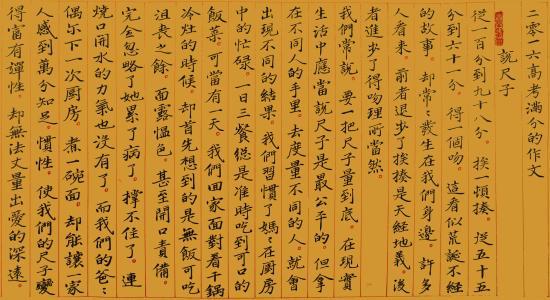 二零一六高考滿分的作文
說尺子
從一百分到九十八分。挨一頓揍。從五十五
分到六十一分。得一個吻。這看似荒誕不經
的故事。却常々發生在我們身邊。許多
人看來。前者退步了挨揍是天經地義。後
者進步了得吻理所當然。
我們常說。要一把尺子量到底。在現實
生活中應當說尺子是最公平的。但拿
在不同人的手里。去度量不同的人。就會
出現不同的結果。我們習慣了媽々在厨房
中的忙碌。一日三餐總是准時吃到可口的
飯菜。可當有一天。我們回家面對看千鍋
冷灶的時候。却首先想到的是無飯可吃
沮喪之餘。面露愠色。甚至開口責備。
完全忽略了她累了病了。撑不住了。連
燒口開水的力氣也没有了。而我們的爸々
偶尔下一次厨房。煮一碗面。却能讓一家
人感到萬分知足。慣性。使我們的尺子變
得富有彈性。却無法丈量出愛的深遠。